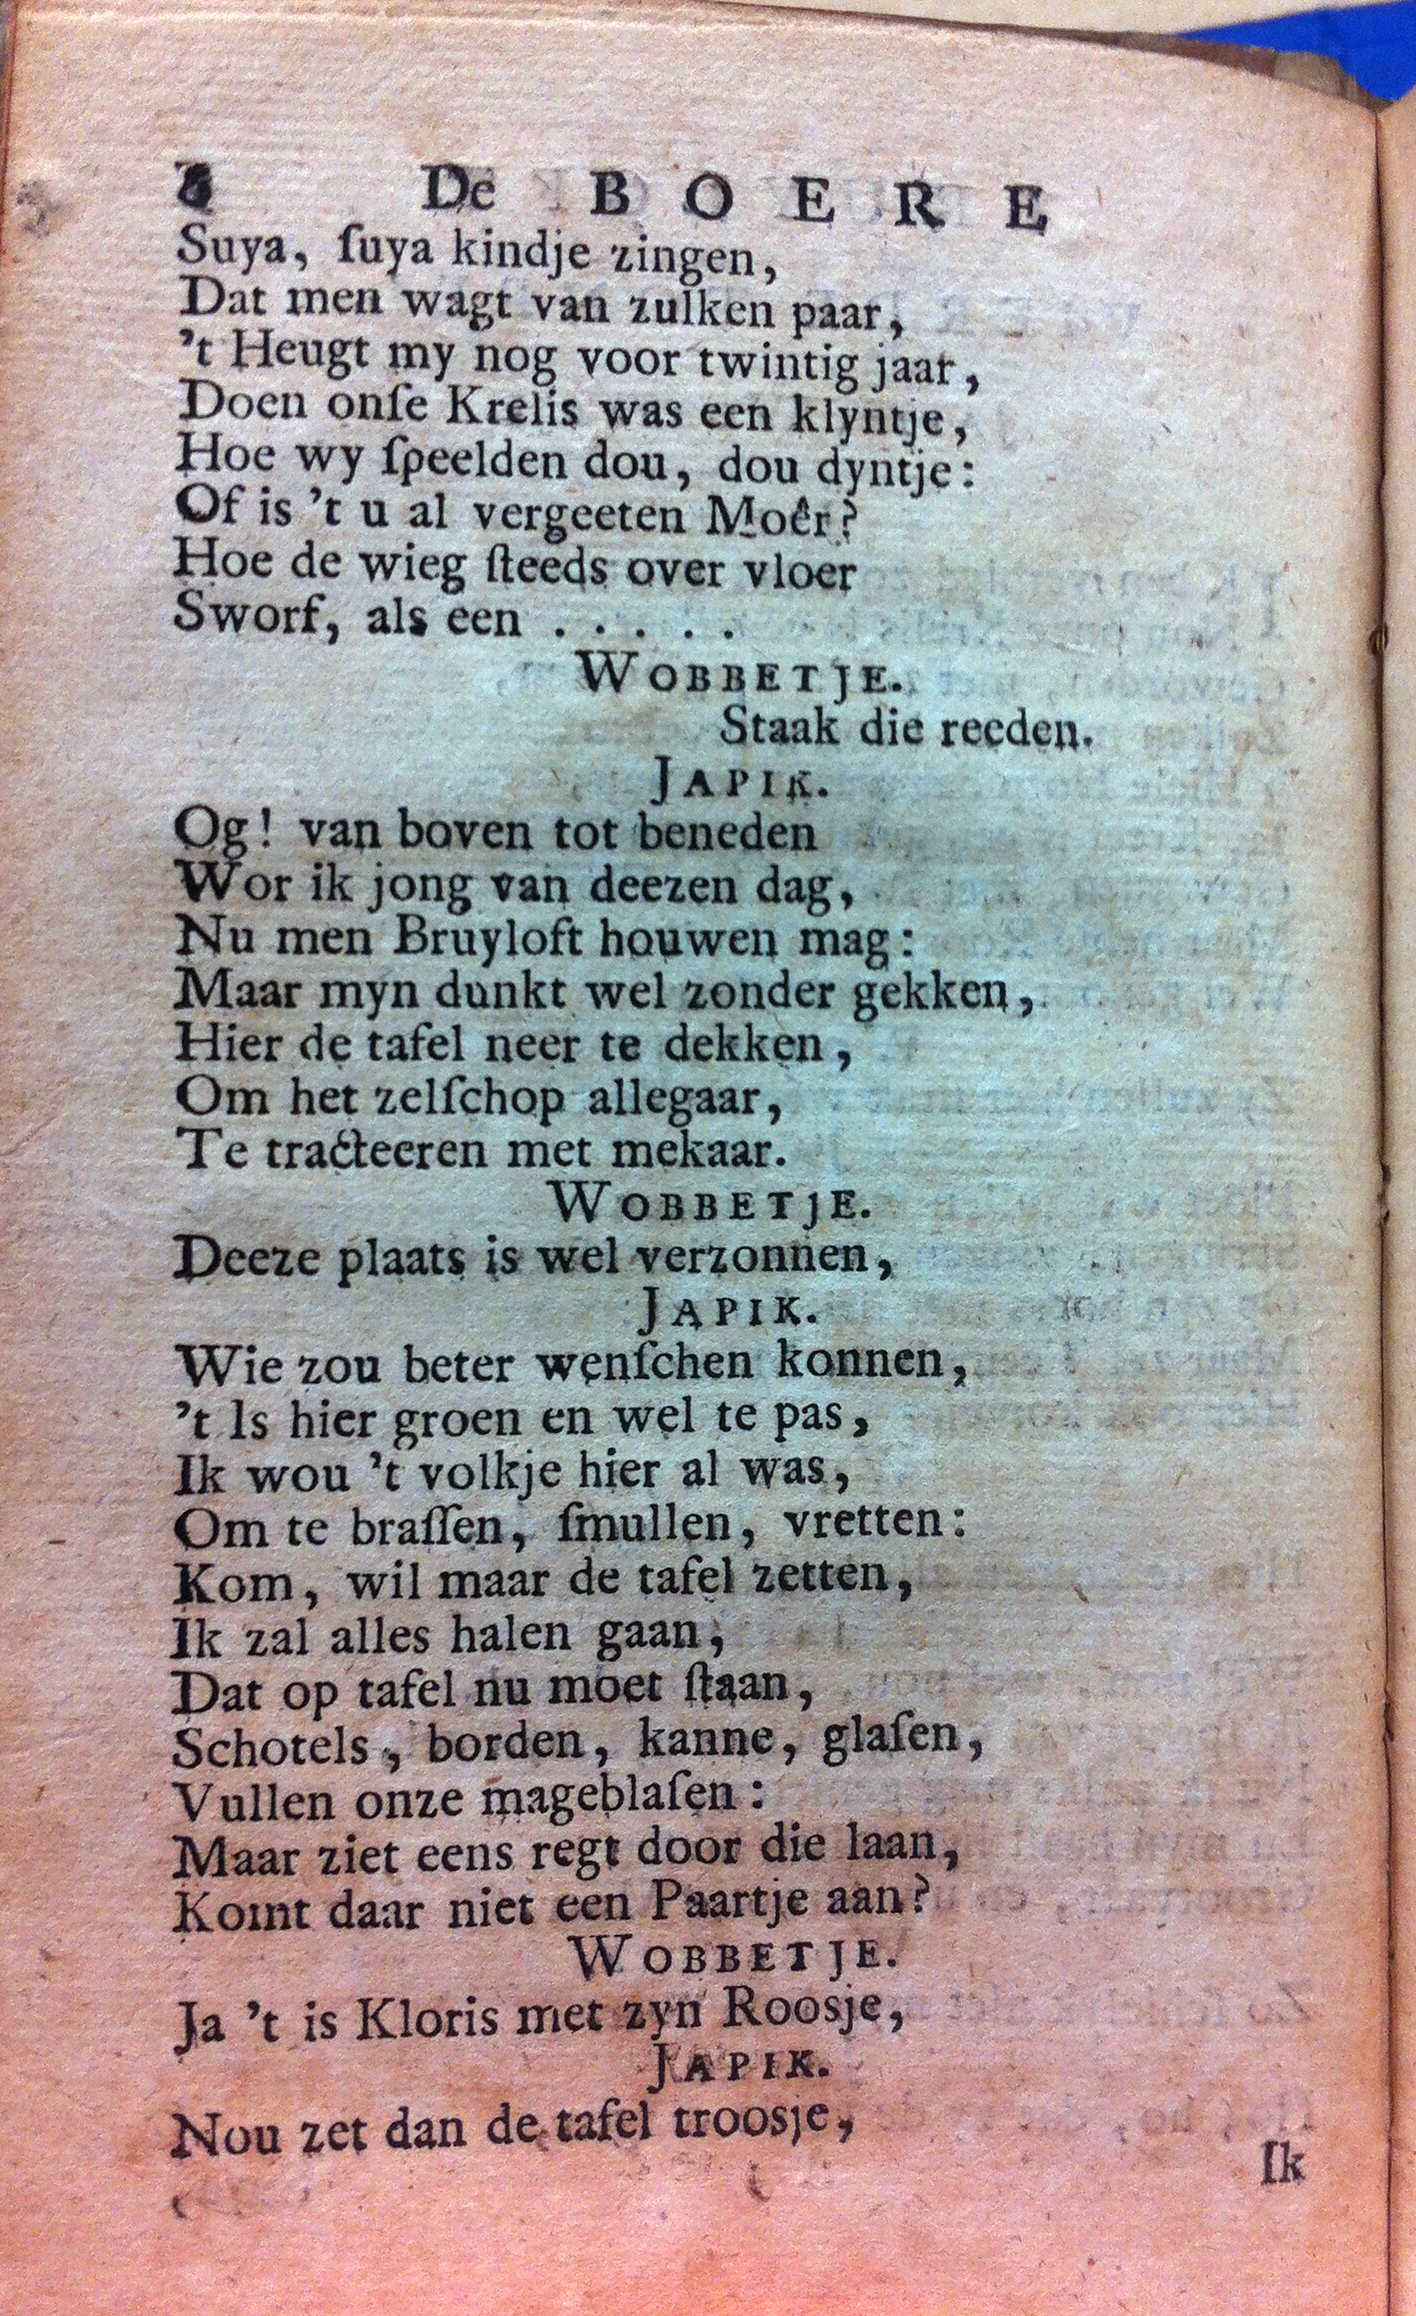 De BOERE
Suya, ſuya kindje zingen,
Dat men wagt van zulken paar,
't Heugt my nog voor twintig jaar,
Doen onſe Krelis was een klyntje,
Hoe wy ſpeelden dou, dou dyntje:
Of is 't u al vergeeten Moêr?
Hoe de wieg ſteeds over vloer
Sworf, als een . . . . .
WOBBETJE.
Staak die reeden.
JAPIK.
Og! van boven tot beneden
Wor ik jong van deezen dag,
Nu men Bruyloft houwen mag:
Maar myn dunkt wel zonder gekken,
Hier de tafel neer te dekken,
Om het zelſchop allegaar,
Te tracteeren met mekaar.
WOBBETJE.
Deeze plaats is wel verzonnen,
JAPIK.
Wie zou beter wenſchen konnen,
't Is hier groen en wel te pas,
Ik wou 't volkje hier al was,
Om te braſſen, ſmullen, vretten:
Kom, wil maar de tafel zetten,
Ik zal alles halen gaan,
Dat op tafel nu moet ſtaan,
Schotels, borden, kanne, glaſen,
Vullen onze mageblaſen:
Maar ziet eens regt door die laan,
Komt daar niet een Paartje aan?
WOBBETJE.
Ja 't is Kloris met zyn Roosje,
JAPIK.
Nou zet dan de tafel troosje,
Ik